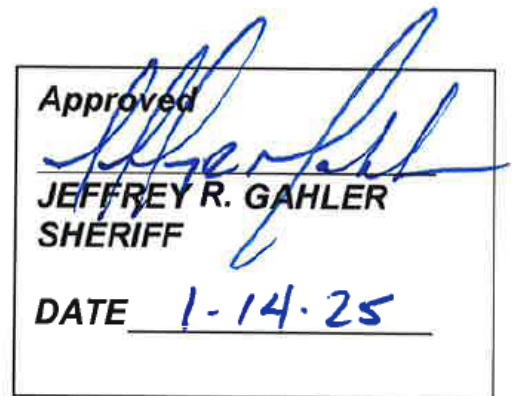 Approved
JEFFREY R. GAHLER
SHERIFF
DATE 1-14-25